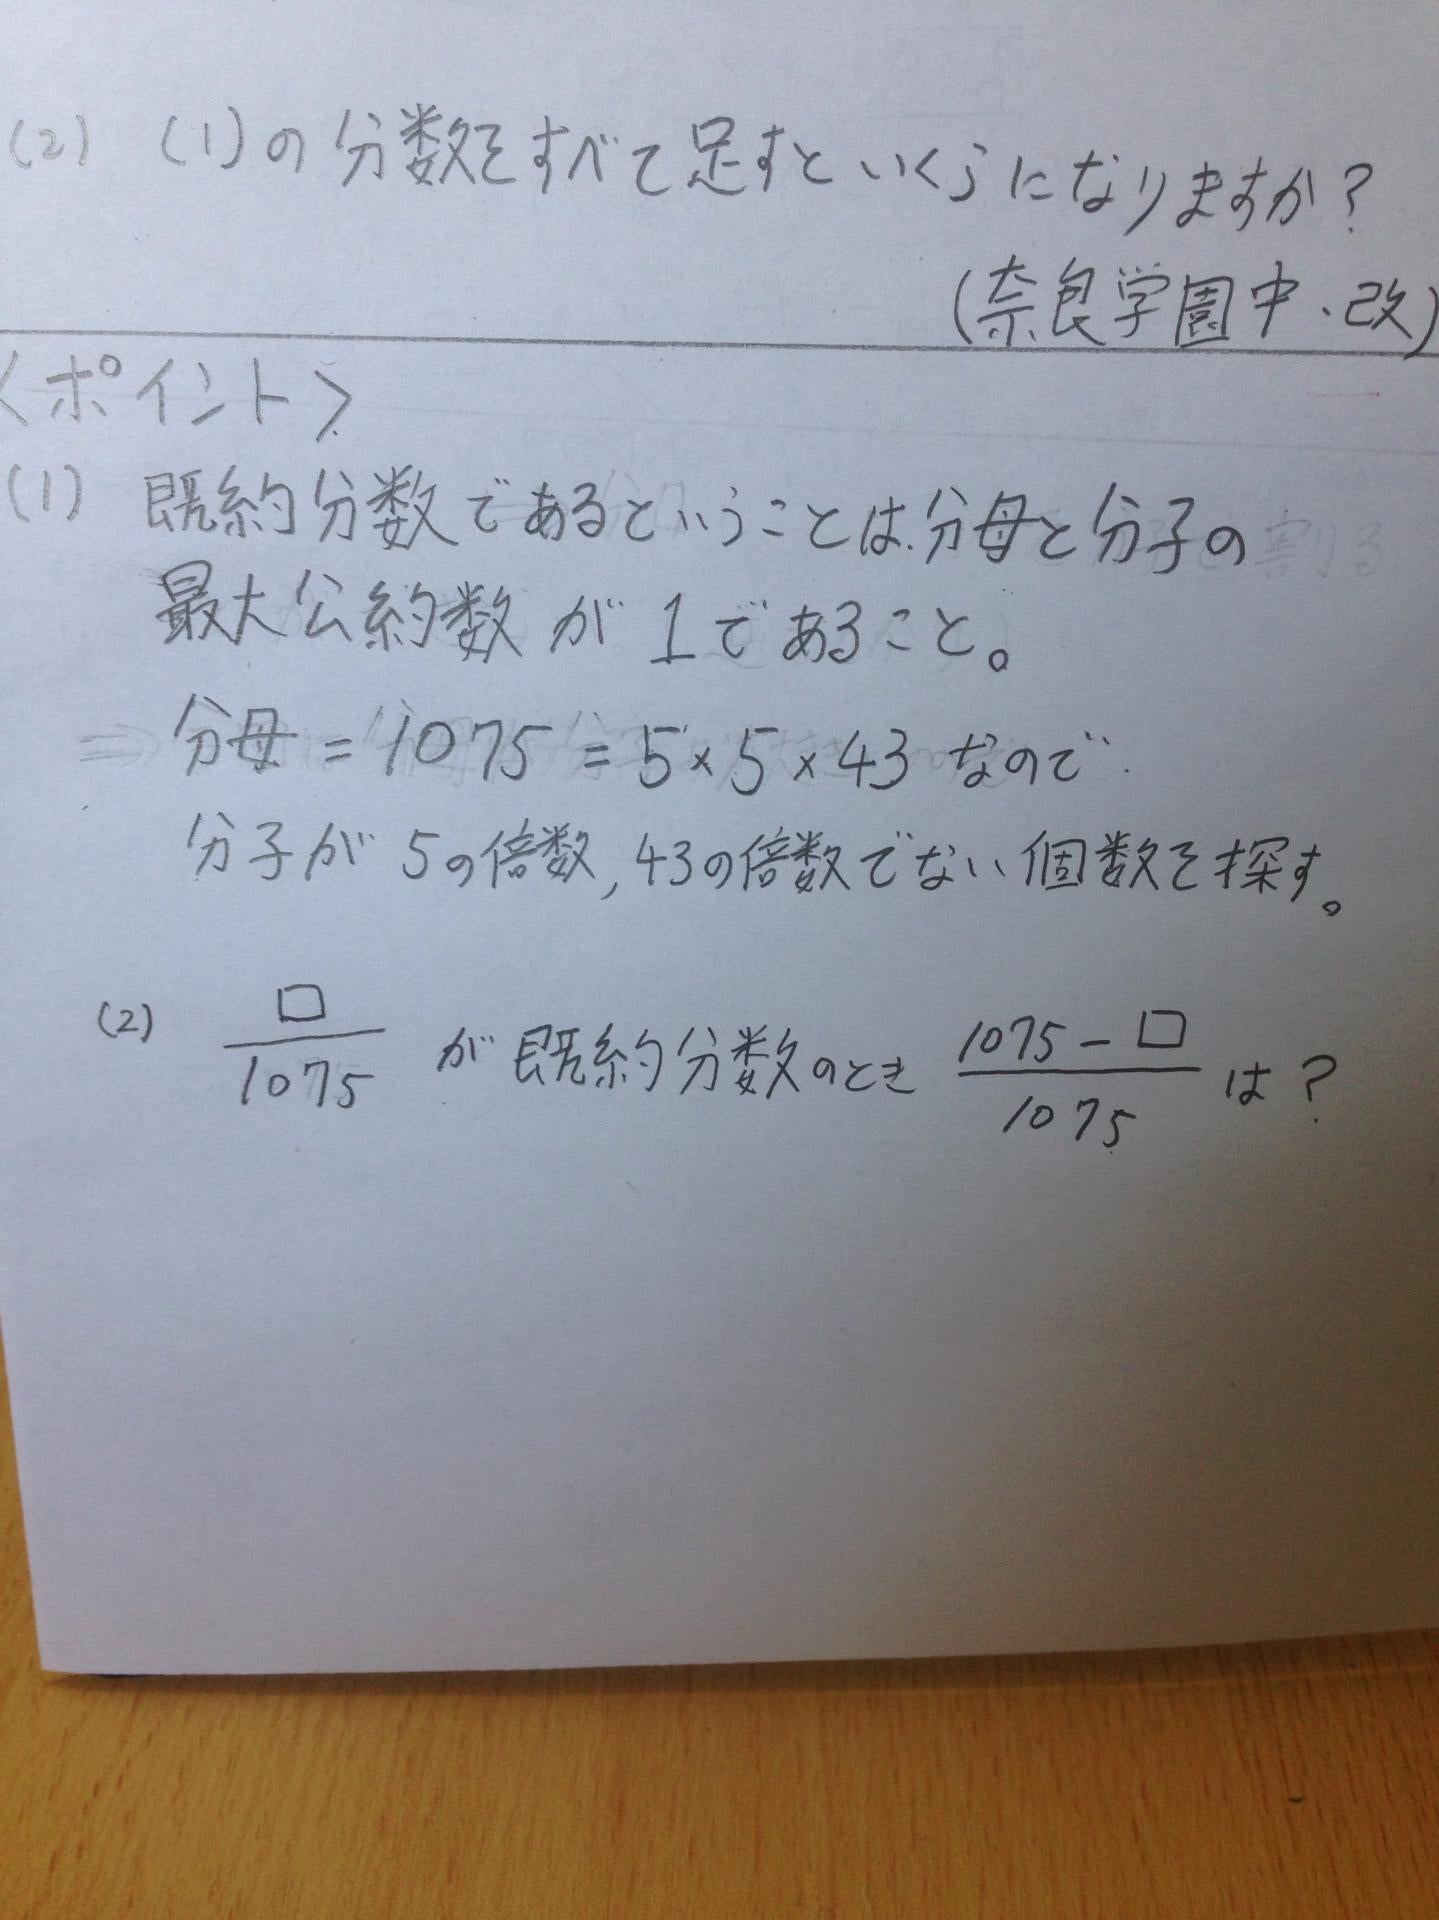 (2) (1)の分数をすべて足すといくらになりますか?
(奈良学園中・改)
<ポイント>
(1) 既約分数であるということは分母と分子の
最大公約数が1であること。
⇒ 分母=1075=5×5×43なので
分子が5の倍数,43の倍数でない個数を探す。
(2) □/1075 が既約分数のとき (1075-□)/1075 は?